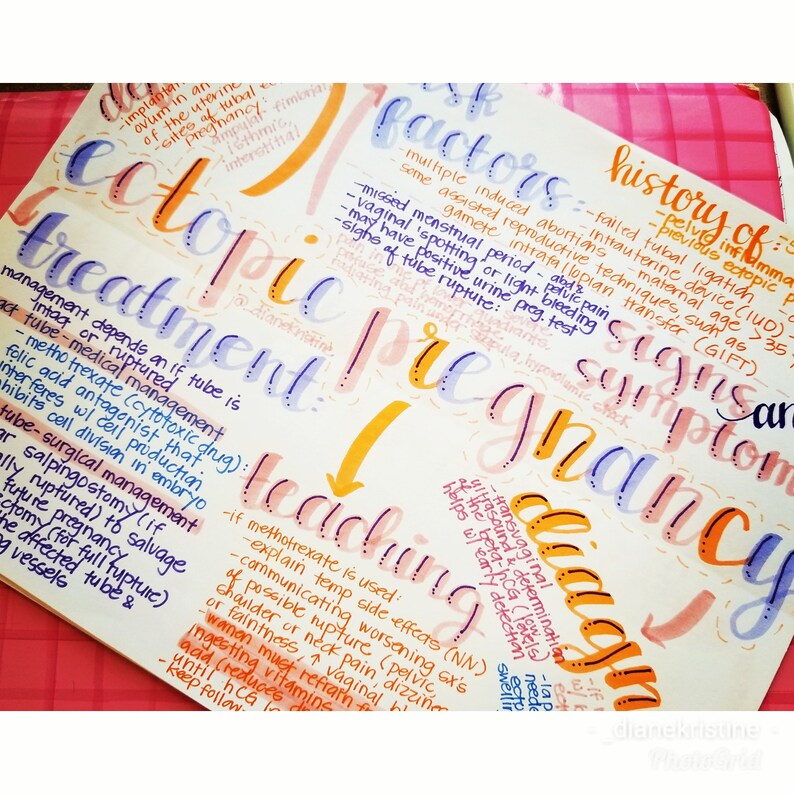 - implantation
ovum in an
of the uterine
- sites of tubal
pregnancy:
ampular, fimbrial,
isthmic,
interstitial
ectopic pregnancy
@_dianekristine
factors:
- multiple induced abortions
- some assisted reproductive techniques, such as
gamete intrafallopian transfer (GIFT)
- failed tubal ligation
- intrauterine device (IUD)
- maternal age > 35
history of:
- pelvic inflamma
- previous ectopic p
signs
an
symptom
- missed menstrual period
- abd &
pelvic pain
- vaginal spotting or light bleeding
- may have positive urine preg. test
- signs of tube rupture:
treatment:
management depends on if tube is
intact or ruptured
act tube-medical management
- methotrexate (cytotoxic drug):
folic acid antagonist that
interferes w/ cell production
nhibits cell division in embryo
tube-surgical management
ar salpingostomy (if
ally ruptured) to salvage
future pregnancy
ectomy (tot full rupture)
he affected tube &
ng vessels
teaching
- if methotrexate is used:
- explain temp side effects (N/V)
- communicating worsening sx's
of possible rupture (pelvic
shoulder or neck pain, dizzine
or faintness, ↑ vaginal bl
- woman must refrain fr
ingesting vitamins
acid (reduces
until hCG
- keep follow-
diagn
- transvaginal
ultrasound & determination
of the beta-hCG (low
levels)
helps w/ early detection
need
ectop
swellin
- if
w/
ect
_dianekristine -
PhotoGrid